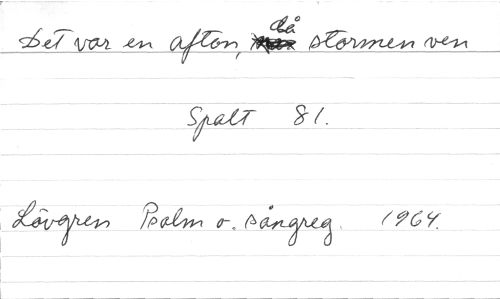 Det var en afton, då stormen ven
Spalt 81.
Lövgren Psalm o. sångreg. 1964.